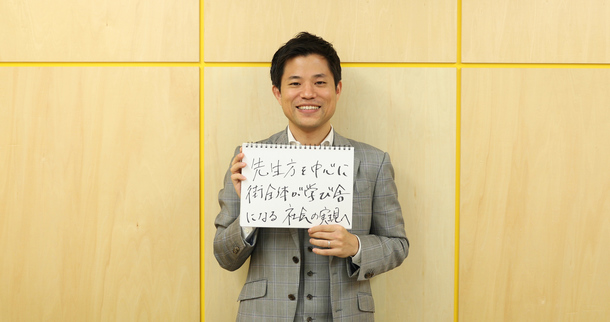 先生方を中心に
街全体が学び舎
になる 社会の実現へ